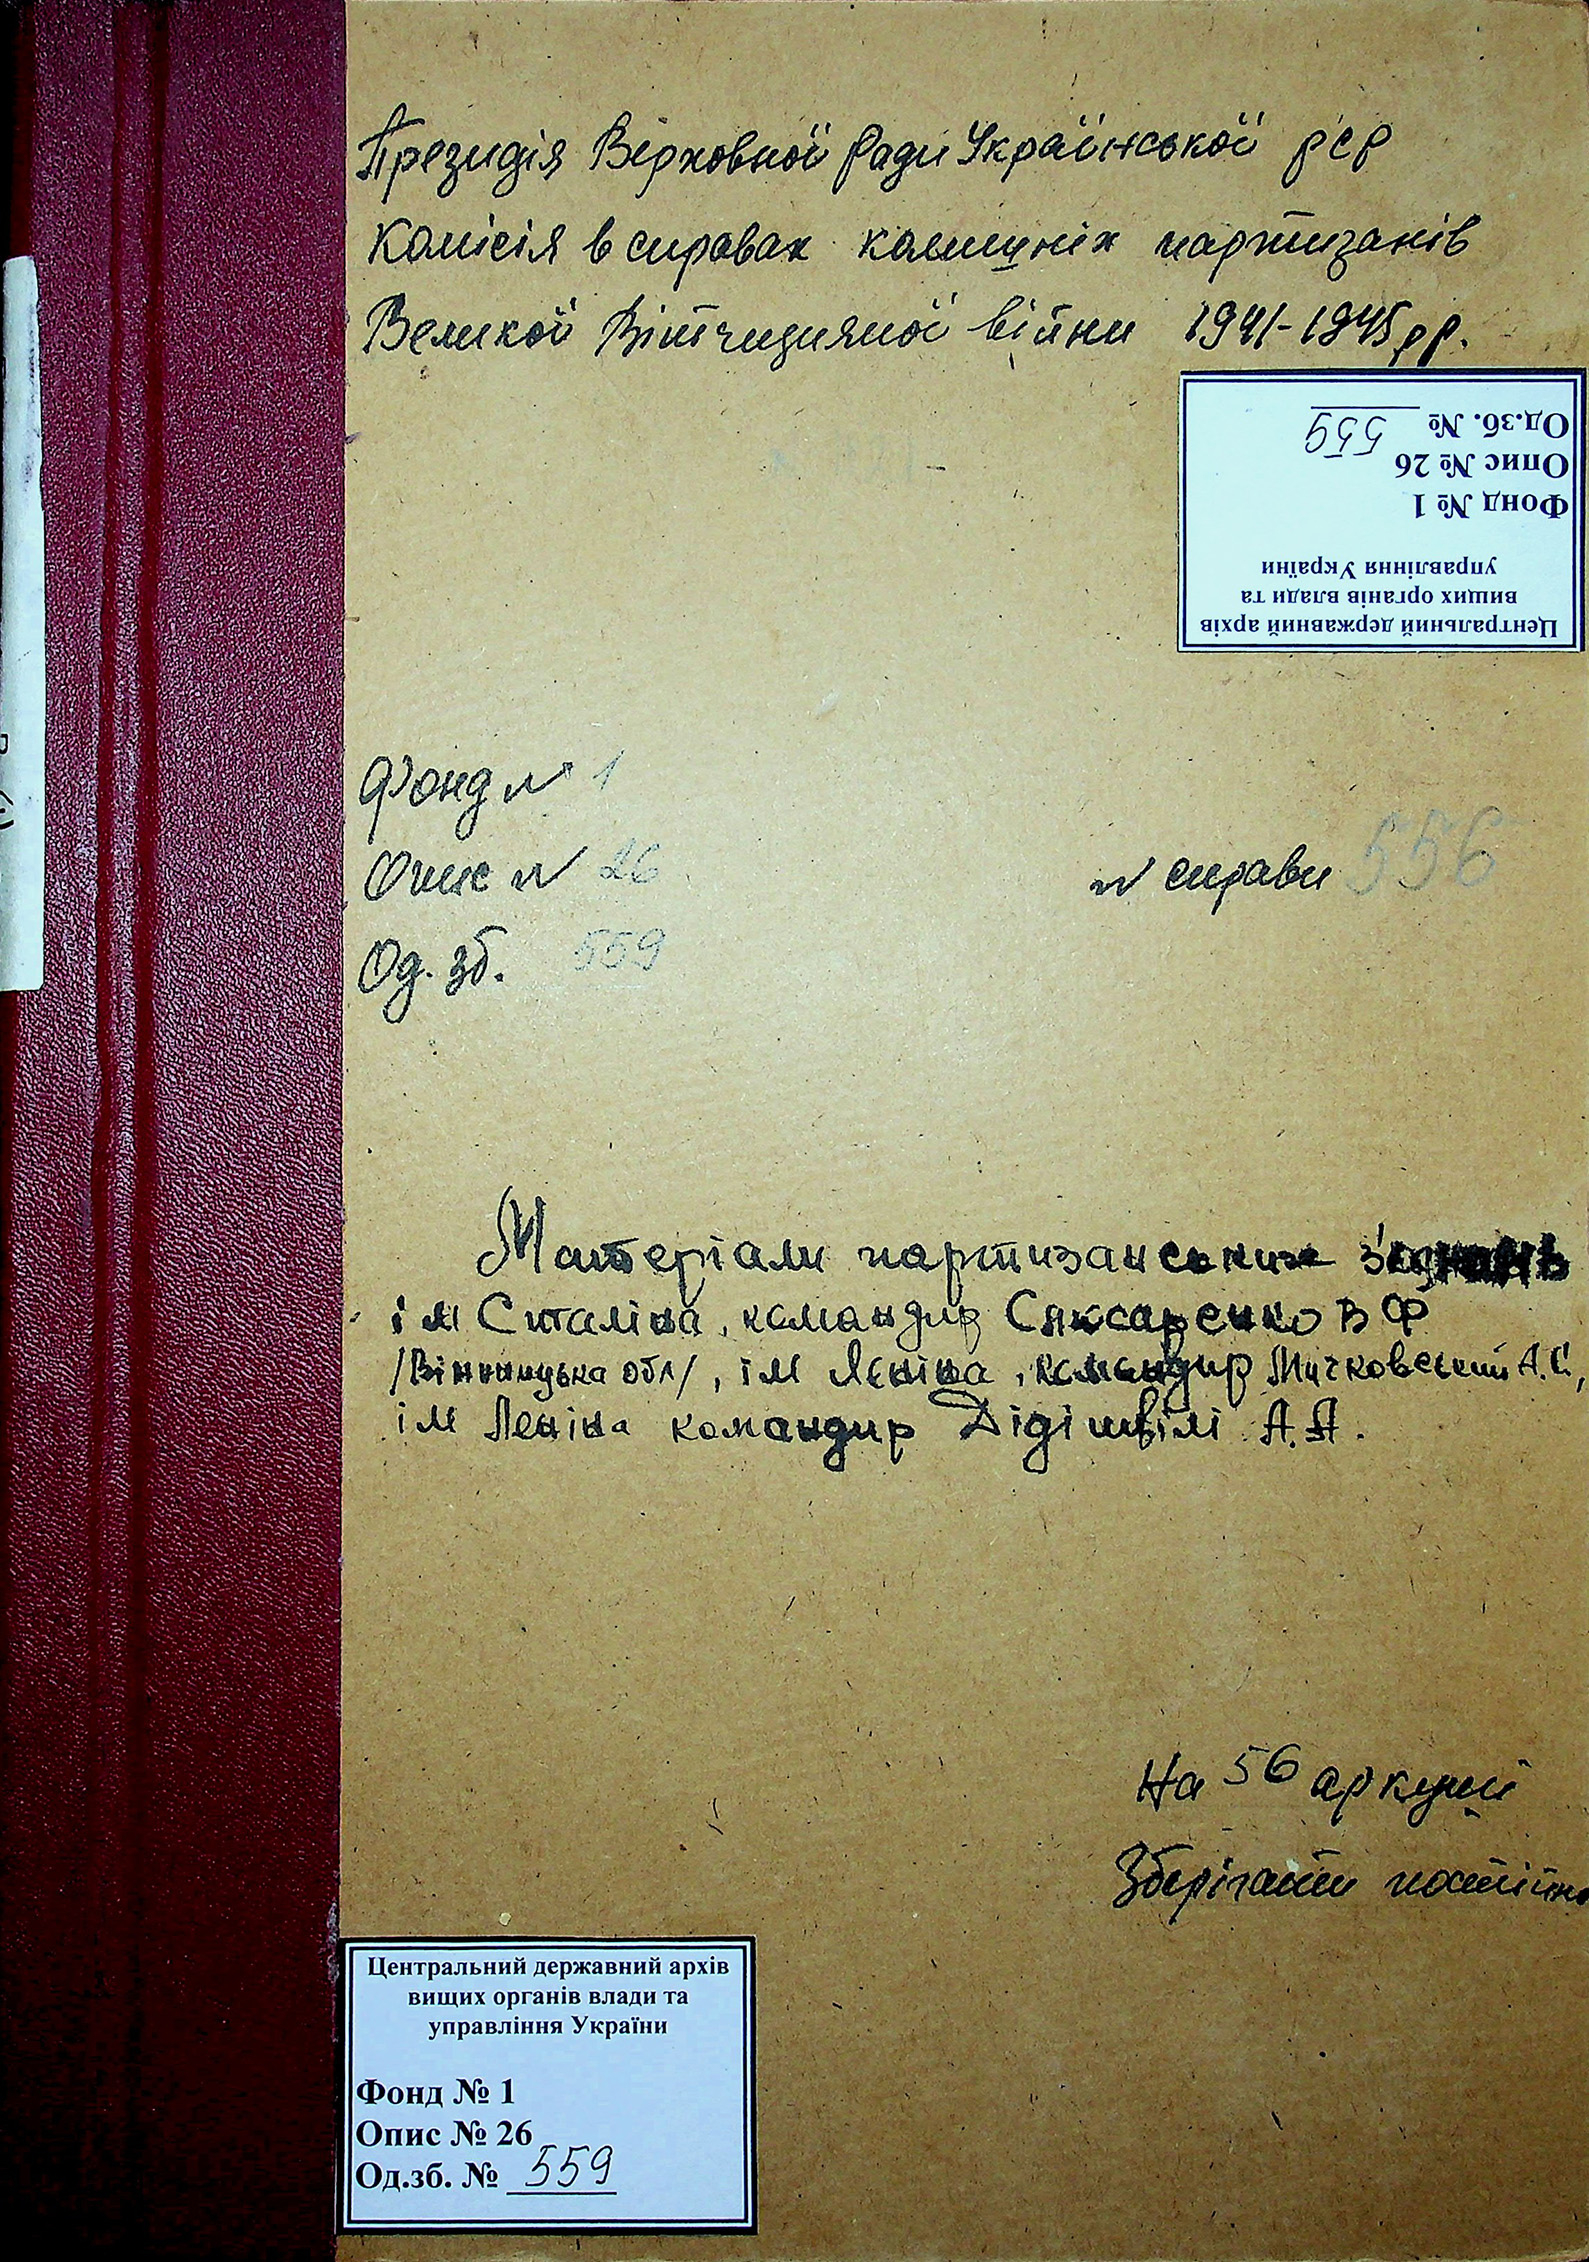 Президія Верховної Ради Української РСР
Комісія в справах колишніх партизанів
Великої Вітчизняної війни 1941-1945 рр.
Центральний державний архів
вищих органів влади та
управління України
Фонд № 1
Опис № 26
Од.зб. № 559
Фонд № 1
Опис № 26
№ справи 556
Од. зб. 559
Матеріали партизанських з'єднань
ім Сталіна, командир Слюсаренко В Ф
/Вінницька обл/, ім Леніна, командир Мичковський А.С,
ім Леніна командир Дідішвілі А.А.
На 56 аркуші
Зберігати постійно
Центральний державний архів
вищих органів влади та
управління України
Фонд № 1
Опис № 26
Од.зб. № 559